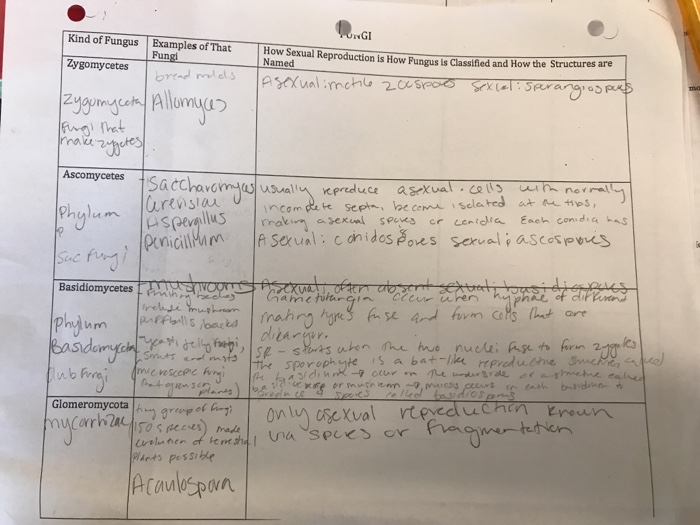 FUNGI
Kind of Fungus
Examples of That
Fungi
How Sexual Reproduction is How Fungus is Classified and How the Structures are
Named
Zygomycetes
Zygomycota
Fungi that
make zygotes
bread molds
Allomyces
Asexual: motile zoospores sexual: sporangiospores
Ascomycetes
Phylum
Sac fungi
Saccharomyces
cerevisiae
Aspergillus
Penicillium
usually reproduce asexual. cells with normally
incomplete septa, become isolated at the tips,
making asexual spores or conidia Each conidia has
Asexual: conidospores sexual: ascospores
Basidiomycetes
Phylum
Basidomycota
Club fungi
mushrooms
fruiting bodies
include mushroom
puffballs,
yeast, jelly fungi,
smuts and rusts
(microscopic fungi
that grow on
plants)
Asexual: often absent sexual: basidiospores
Gametotangia occur when hyphae of different
mating types fuse and form cells that are
dikaryon.
SR - starts when the two nuclei fuse to form zygotes
the sporophyte is a bat-like reproductive structure, called
the basidium → occur on the underside of a structure called
or mushroom → meiosis occurs in each basidium to
produce spores called basidiospores
Glomeromycota
mycorrhizae
tiny group of fungi
(150 species) made
evolution of terrestrial
plants possible
Acaulospora
only asexual reproduction known
via spores or fragmentation